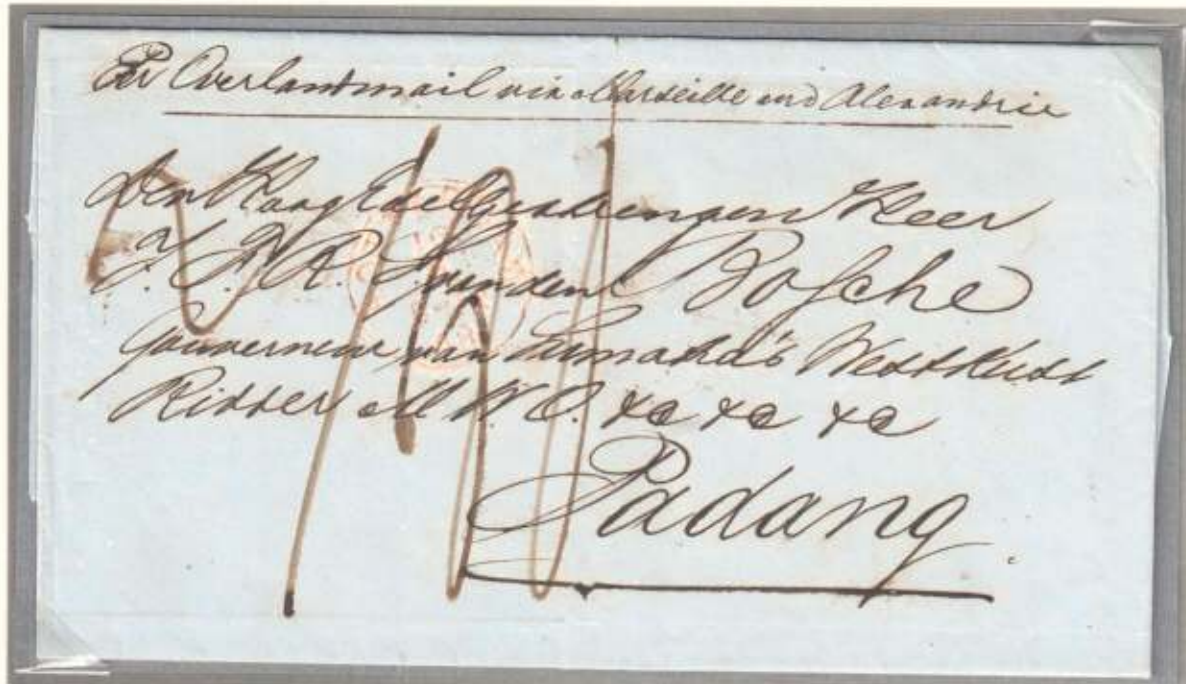 Per Overlandmail via Marseille and Alexandrie
Den Hoog EdelGestrengen Heer
J. van den Bosche
Gouverneur van Sumatra's Westkust
Ridder M W. O. &c &c &c
Padang.